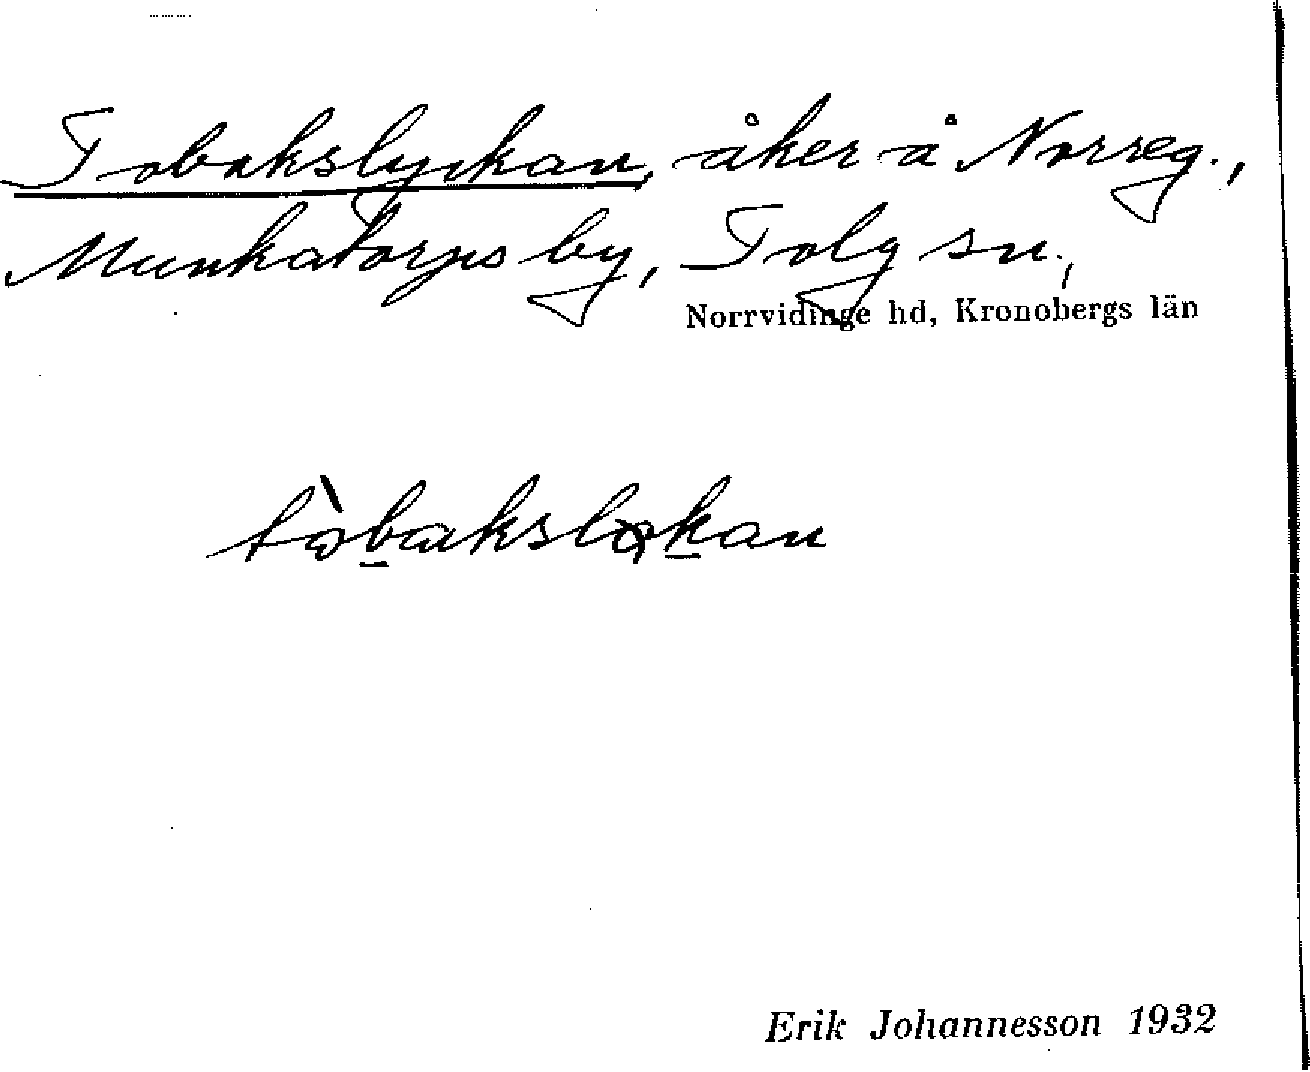 Tobakslyckan, åker å Norreg.,
Munkatorps by, Tolg sn.,
Norrvidinge hd, Kronobergs län
tòbaksløkan
Erik Johannesson 1932